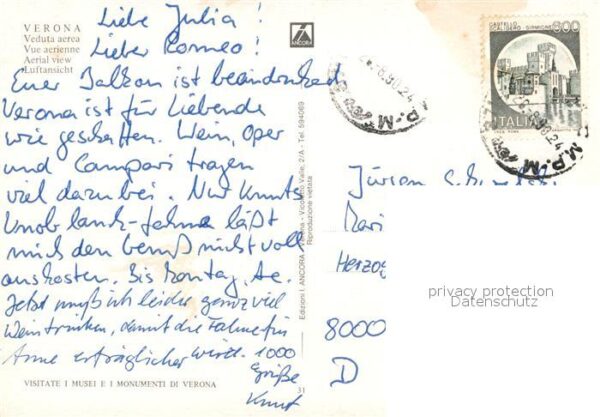 VERONA
Veduta aerea
Vue aerienne
Aerial view
Luftansicht
Liebe Julia!
Lieber Romeo!
Euer Balkon ist beeindruckend
Verona ist für Liebende
wie geschaffen. Wein, Oper
und Campari tragen
viel dazu bei. Nur Knuts
Knoblauch-Fahne läßt
mich den nicht voll
auskosten. Bis Montag,
Jetzt muß ich leider ganz viel
Wein trinken, damit die Fahne für
Anne erträglicher wird. 1000
Grüße
Knut
VISITATE I MUSEI E I MONUMENTI DI VERONA
31
ANCORA
Edizioni I. ANCORA - Verona - Vicoletto Valle, 2/A - Tel. 594069
Riproduzione vietata
800
ITALIA
P.M
Jürgen
Mari
Herzog
8000
D
privacy protection
Datenschutz